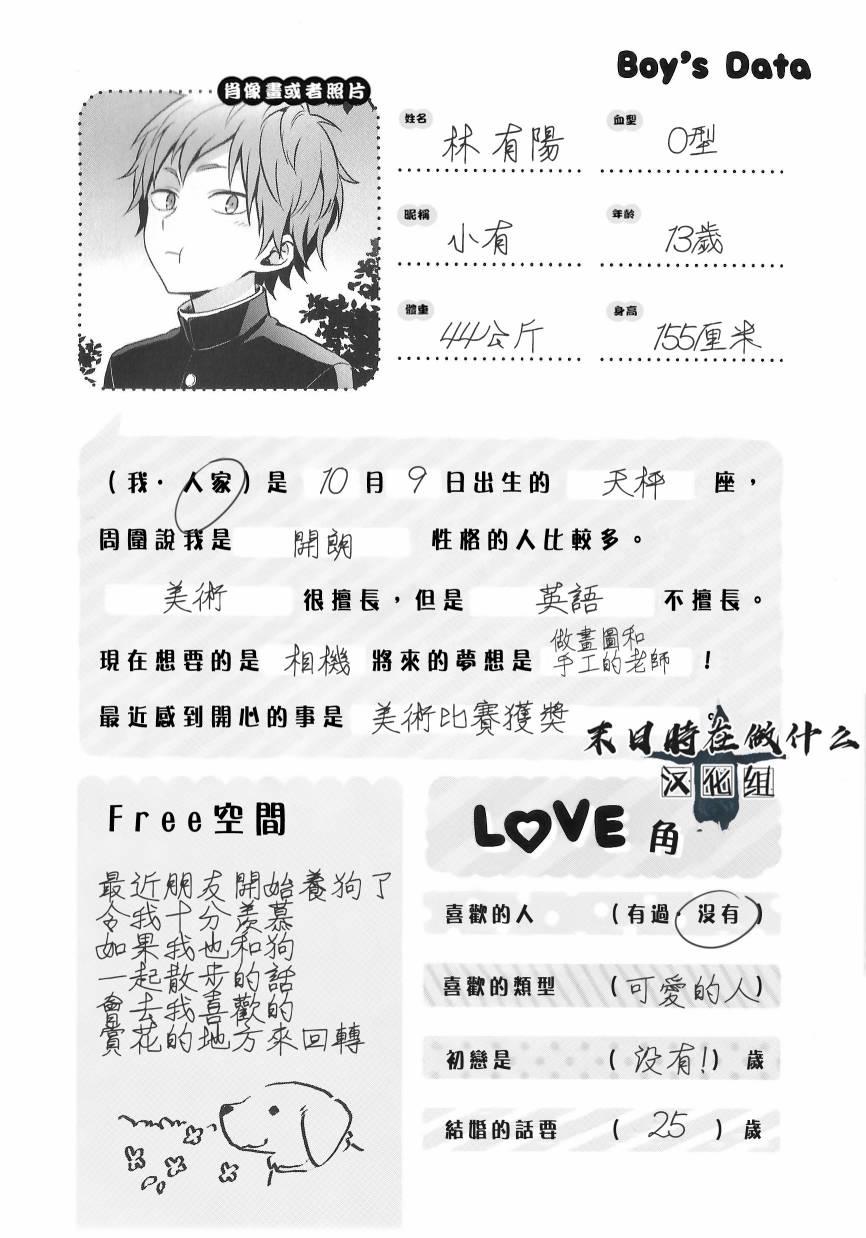 Boy's Data
肖像畫或者照片
姓名 林有陽
血型 O型
昵稱 小有
年齡 13歲
體重 44公斤
身高 155厘米
（我·人家）是 10 月 9 日出生的 天秤 座，
周圍說我是 開朗 性格的人比較多。
美術 很擅長，但是 英語 不擅長。
現在想要的是 相機 將來的夢想是 做畫圖和手工的老師 ！
最近感到開心的事是 美術比賽獲獎
末日時在做什么
汉化组
Free空間
最近朋友開始養狗了
令我十分羨慕
如果我也和狗
一起散步的話
會去我喜歡的
賞花的地方來回轉
LOVE角
喜歡的人 （有過·沒有）
喜歡的類型 （可愛的人）
初戀是 （没有!）歲
結婚的話要 （25）歲